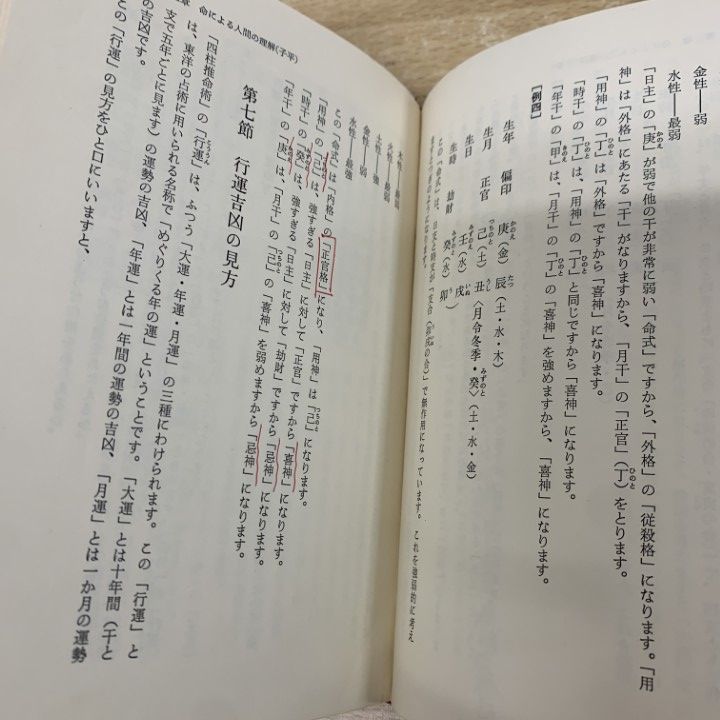 金性――弱
水性――最弱
「日主」の「庚」が弱で他の干が非常に弱い「命式」ですから、「外格」の「従殺格」になります。「用
神」は「外格」にあたる「干」がなりますから、「月干」の「正官」(丁)をとります。
「用神」の「丁」は「外格」ですから「喜神」になります。
「時干」の「丁」は、「用神」の「丁」と同じですから「喜神」になります。
「年干」の「甲」は、「月干」の「丁」を強めますから、「喜神」になります。
【例四】
生年 偏印 庚(金) 辰(土・水・木)
生月 正官 己(土) 丑〈月令冬季・癸〉(土・水・金)
生日 壬(水) 戌
生時 劫財 癸(水) 卯
この「命式」は、日支と時支が「支合(卯戌の合)」で無作用になっています。これを強弱的に考え
ますとつぎのようになります。
章 命による人間の理解(子平)
木性――最弱
火性――最弱
土性――強
金性――弱
水性――最強
この「命式」は「内格」の「正官格」になり、「用神」は「己」になります。
「用神」の「己」は、強すぎる「日主」に対して「正官」ですから「喜神」になります。
「時干」の「癸」は、強すぎる「日主」に対して「劫財」ですから「忌神」になります。
「年干」の「庚」は、「月干」の「己」の「喜神」を弱めますから「忌神」になります。
第七節 行運吉凶の見方
「四柱推命術」の「行運」は、ふつう「大運・年運・月運」の三種にわけられます。この「行運」と
は、東洋の占術に用いられる名称で「めぐりくる年の運」ということです。「大運」とは十年間(干と
支で五年ごとに見ます)の運勢の吉凶、「年運」とは一年間の運勢の吉凶、「月運」とは一か月の運勢
の吉凶です。
この「行運」の見方をひと口にいいますと、